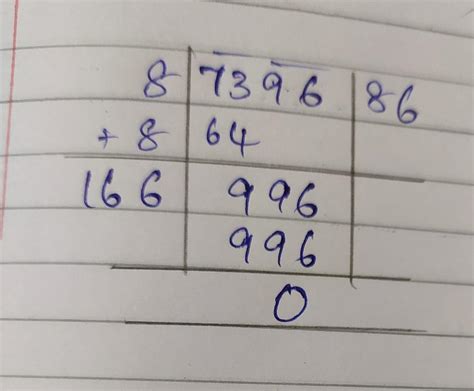 8 7396 86
+ 8 64
166 996
996
0